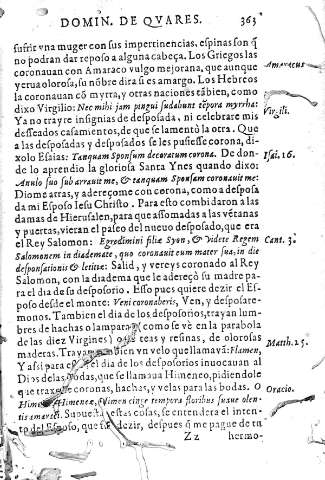 DOMIN. DE QVARES. 363
sufrir vna muger con sus impertinencias, espinas son q̃
no podran dar reposo a alguna cabeça. Los Griegos las
coronauan con Amaraco vulgo mejorana, que aunque
yerua olorosa, su nõbre dira si es amargo. Los Hebreos
la coronauan cõ myrra, y otras naciones tãbien, como
dixo Virgilio: Nec mihi jam pingui sudabunt tẽpora myrrha:
Ya no trayre insignias de desposada, ni celebrare mis
desseados casamientos, de que se lamentò la otra. Que
a las desposadas y desposados se les pusiesse corona, di-
xolo Esaias: Tanquam Sponsum decoratum corona. De don-
de lo aprendio la gloriosa Santa Ynes quando dixo:
Annulo suo subarrauit me, & tanquam Sponsam coronauit me:
Diome arras, y adereçome con corona, como a desposa
da mi Esposo Iesu Christo. Para esto combidaron a las
damas de Hierusalen, para que assomadas a las vẽtanas
y puertas, vieran el paseo del nueuo desposado, que era
el Rey Salomon: Egredimini filiæ Syon, & videte Regem
Salomonem in diademate, quo coronauit eum mater sua, in die
desponsationis & letitiæ: Salid, y vereys coronado al Rey
Salomon, con la diadema que le adereçò su madre pa-
ra el dia de su desposorio. Esso pues quiere dezir el Es-
poso desde el monte: Veni coronaberis, Ven, y desposare-
monos. Tambien el dia de los desposorios, trayan lum-
bres de hachas o lamparas (como se vè en la parabola
de las diez Virgines) o de teas y resinas, de olorosas
maderas. Trayan tambien vn velo que llamauã: Flamen,
Y assi para el dia de los desposorios inuocauan al
Dios de las bodas, que se llamaua Himeneo, pidiendole
que traxesse coronas, hachas, y velas para las bodas. O
Himen Himenæe, Vimen cinge tempora floribus suaue olen-
tis amaraci. Supuestas estas cosas, se entendera el inten-
to del Esposo, que es dezir, despues q̃ me pague de tu
Zz hermo-
Amaracus
Virgili.
Isai. 16.
Cant. 3.
Matth. 25.
Oracio.